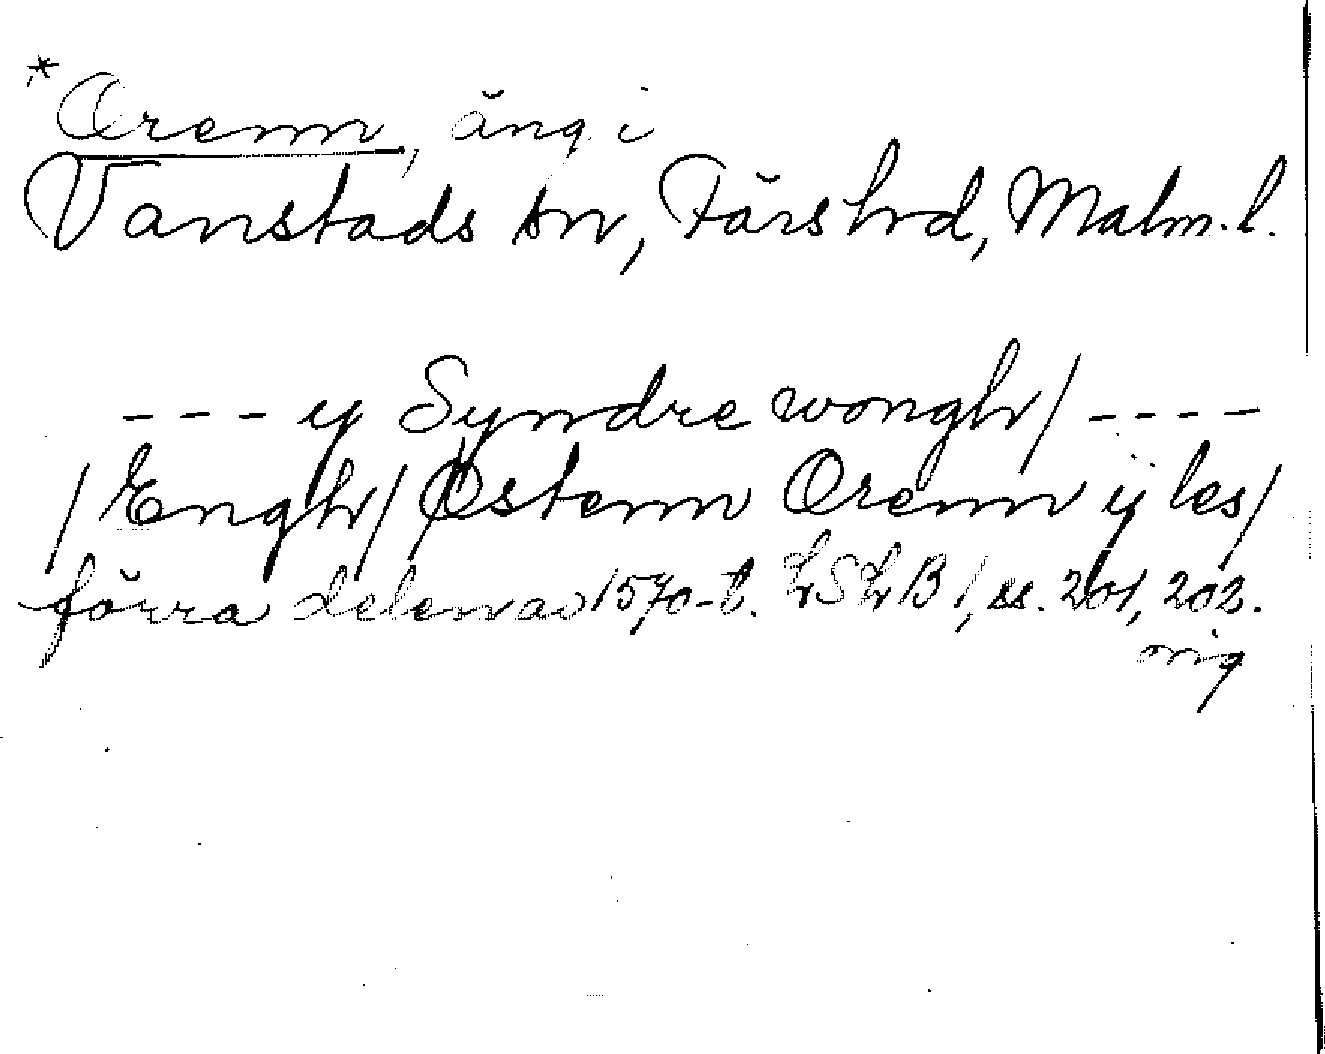 *Orenn, äng i
Vanstads sn, Färs hrd, Malm. l.
--- y Syndre wongh/ ----
/Engh/ Østenn Orenn ÿ les/
förra delen av 1570-t. LSLB 1, ss. 201, 202.
orig